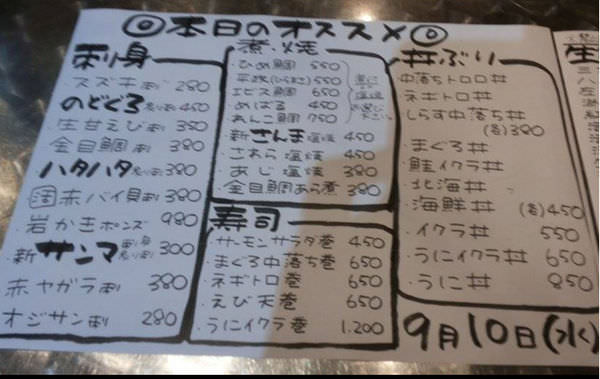 ◎本日のオススメ◎
刺身
スズキ刺 280
のどぐろ炙り刺 450
生甘えび刺 350
金目鯛刺 380
ハタハタ炙り刺 380
活赤バイ貝刺 380
岩かきポンズ 980
新サンマ 刺身 炙り刺 300
赤ヤガラ刺 380
オジサン刺 280
煮・焼
・ひめ鯛 550
・平政(ひらまさ) 550
・エビス鯛 650
・めばる 450
・あんこう鯛 750
新さんま塩焼 450
・さわら塩焼 450
・あじ塩焼 380
・金目鯛あら煮 380
寿司
・サーモンサラダ巻 450
・まぐろ中落ち巻 650
・ネギトロ巻 650
・えび天巻 650
・うにイクラ巻 1.200
丼ぶり
・中落ちトロロ丼
・ネギトロ丼
・しらす中落ち丼
(各)380
・まぐろ丼
・鮭イクラ丼
・北海丼
・海鮮丼 (各)450
・イクラ丼 550
・うにイクラ丼 650
・うに丼 850
9月10日(水)